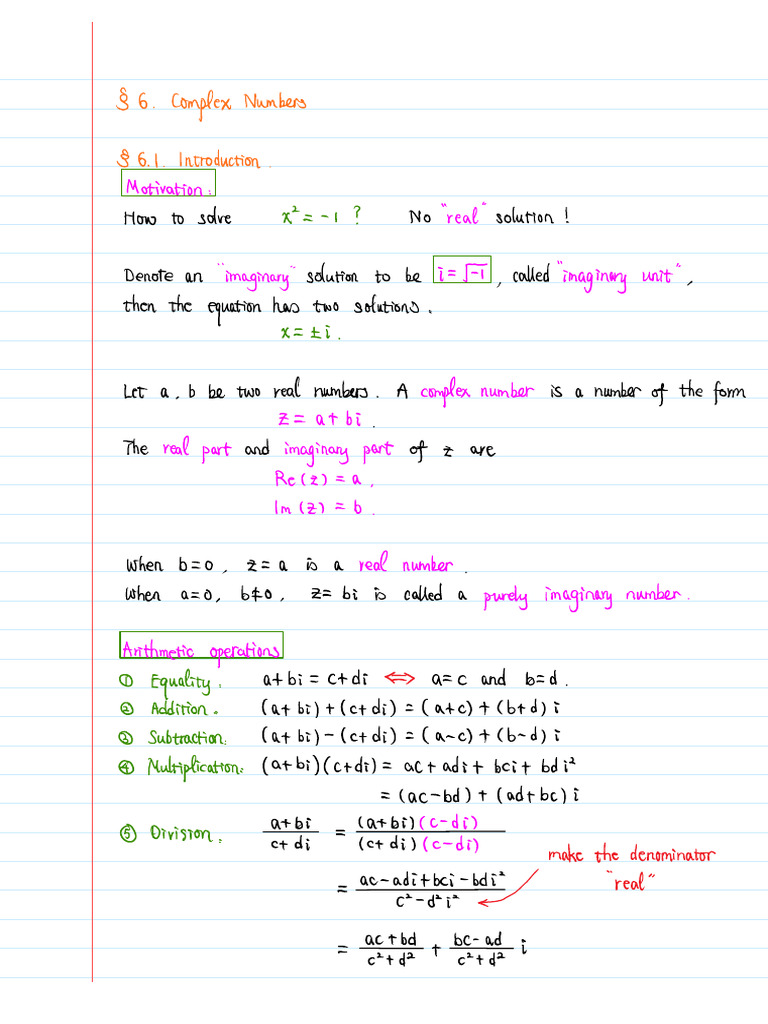 § 6. Complex Numbers
§ 6.1. Introduction.
Motivation:
How to solve x² = -1 ? No "real" solution !
Denote an "imaginary" solution to be i = √-1 , called "imaginary unit",
then the equation has two solutions.
x = ± i.
Let a, b be two real numbers. A complex number is a number of the form
z = a + bi.
The real part and imaginary part of z are
Re(z) = a,
Im(z) = b.
When b = 0, z = a is a real number.
When a = 0, b ≠ 0, z = bi is called a purely imaginary number.
Arithmetic operations
① Equality: a + bi = c + di ⇔ a = c and b = d.
② Addition. (a + bi) + (c + di) = (a + c) + (b + d) i
③ Subtraction: (a + bi) - (c + di) = (a - c) + (b - d) i
④ Multiplication: (a + bi)(c + di) = ac + adi + bci + bdi²
= (ac - bd) + (ad + bc) i
⑤ Division: (a + bi)/(c + di) = (a + bi)(c - di)/(c + di)(c - di)
make the denominator
"real"
= (ac - adi + bci - bdi²)/(c² - d²i²)
= (ac + bd)/(c² + d²) + (bc - ad)/(c² + d²) i